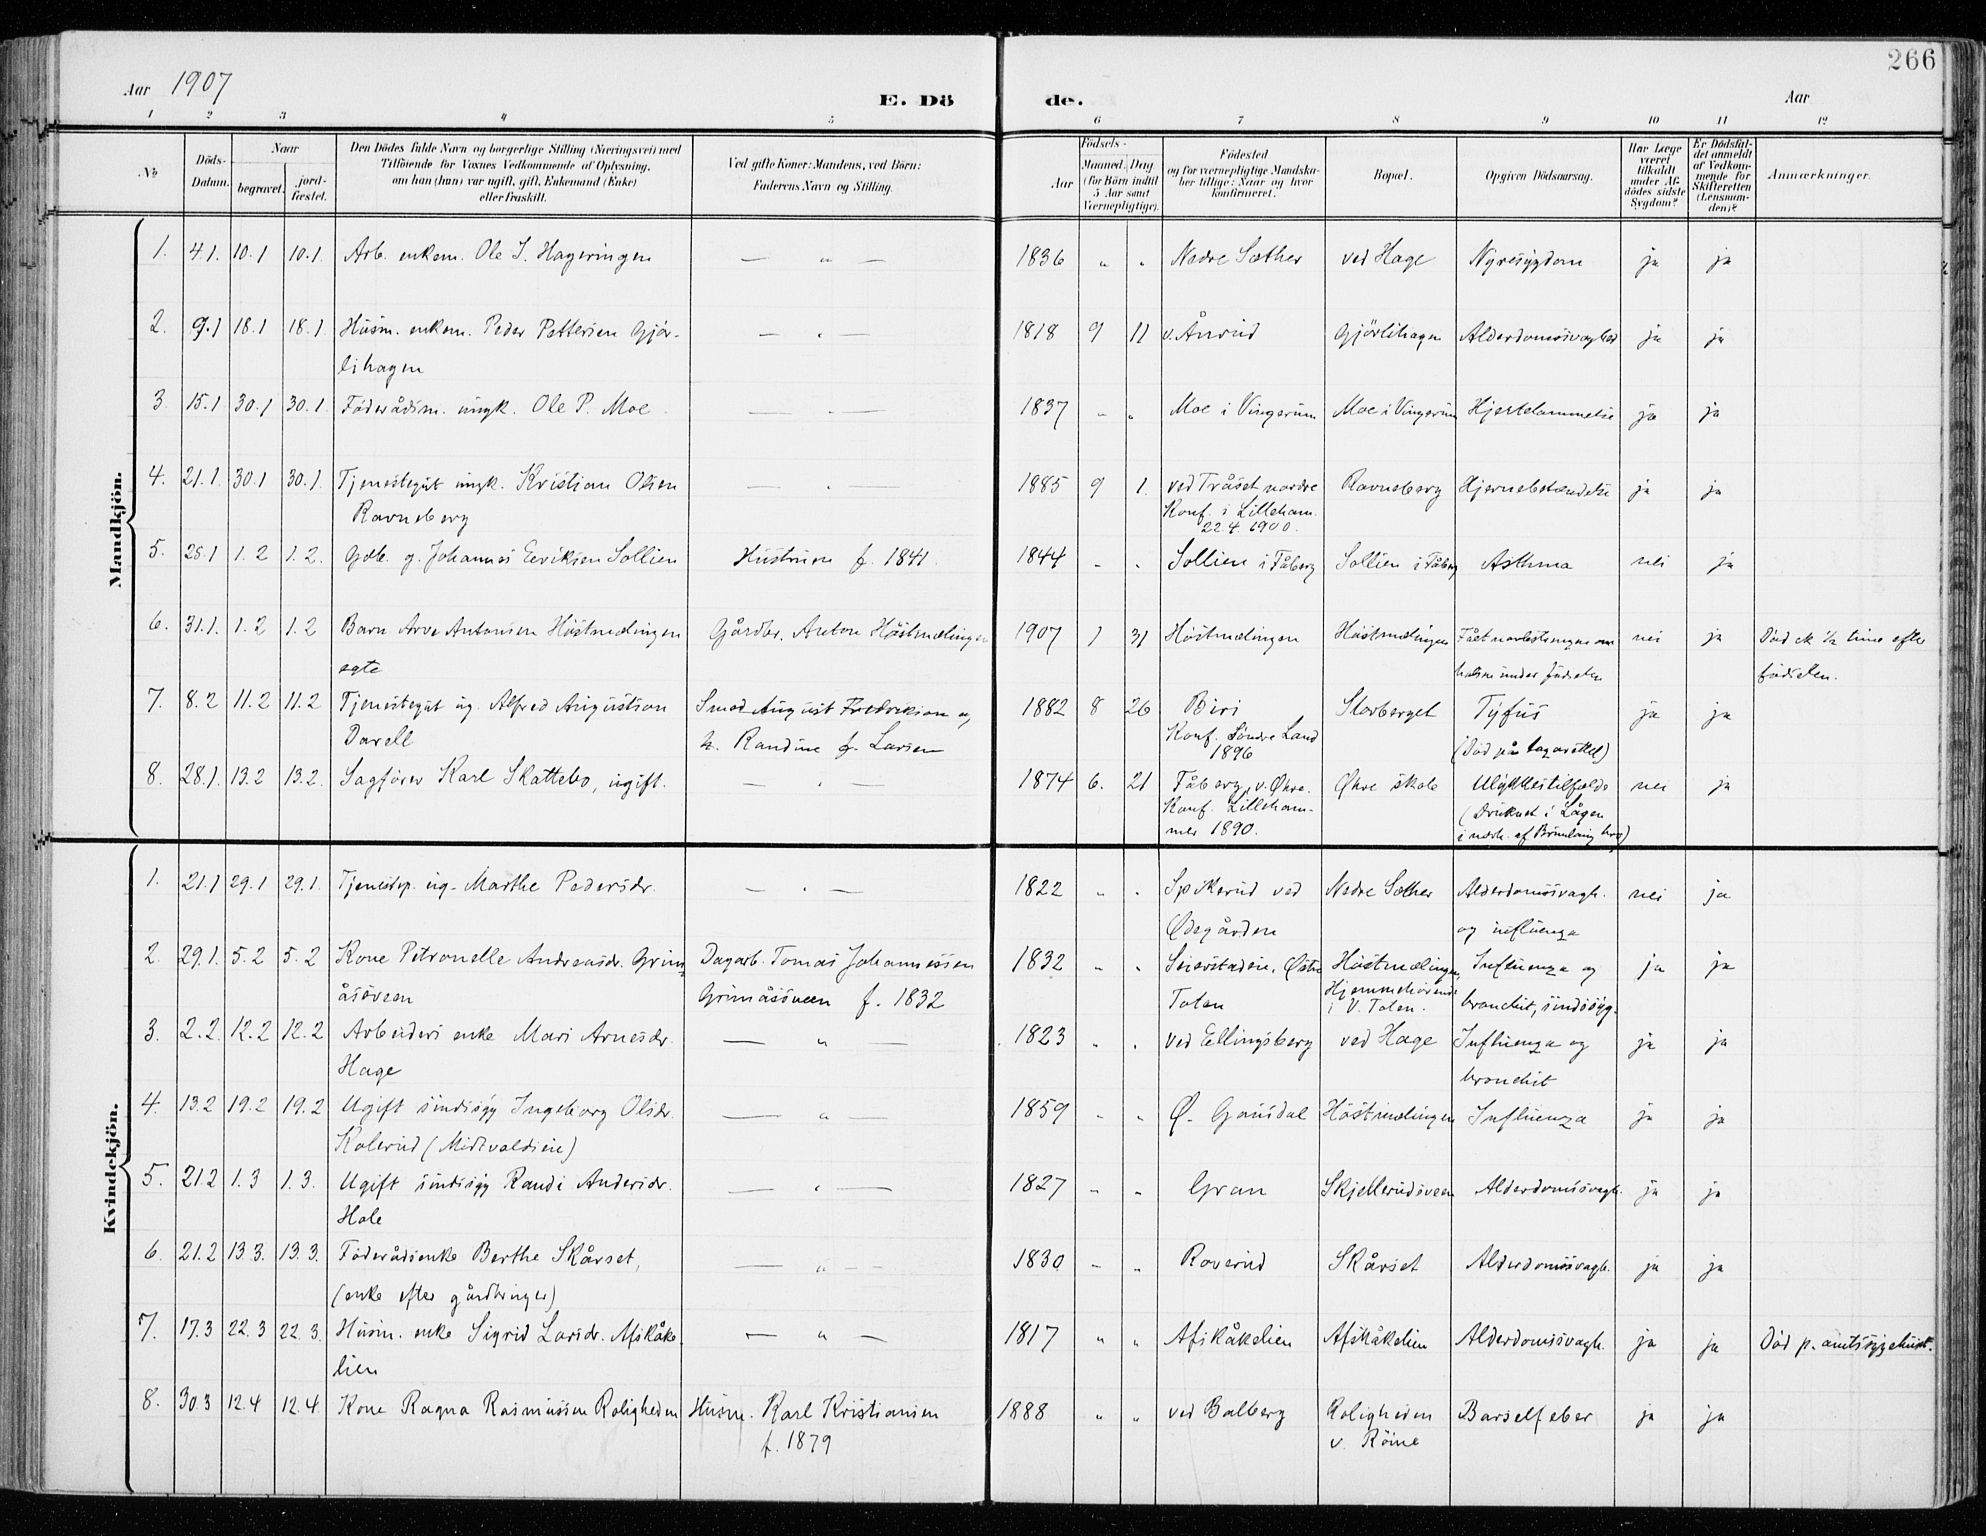 266
Aar 1907
E. Dö de.
Aar
1 2 3 4 5 6 7 8 9 10 11 12
No
Döds-
Datum.
Naar
begravet.
jord-
fæstet.
Den Dödes fulde Navn og borgerlige Stilling (Næringsvei) med
Tilföiende for Voxnes Vedkommende af Oplysning,
om han (hun) var ugift, gift, Enkemand (Enke)
eller fraskilt.
Ved gifte Koner: Mandens, ved Börn:
Faderens Navn og Stilling.
Födsels-
Aar
Maaned. Dag
(for Börn indtil
5 Aar samt
Værnepligtige).
Födested
og for værnepligtige Mandska-
ber tillige: Naar og hvor
konfirmeret.
Bopæl.
Opgiven Dödsaarsag.
Har Læge
været
tilkaldt
under Af-
dödes sidste
Sygdom?
Er Dödsfal-
det anmeldt
af Vedkom-
mende for
Skifteretten
(Lensman-
den)?
Anmærkninger.
Mandkjön.
1. 4.1. 10.1 10.1. Arb. enkem. Ole J. Hageringen — " — 1836 " " Nedre Sæther ved Hage Nyresygdom ja ja
2. 9.1 18.1 18.1. Husm. enkem. Peder Pettersen Gjör- — " — 1818 9 11 v. Ånrud Gjörlihagen Alderdomssvaghed ja ja
lihagen
3. 15.1 30.1 30.1. Föderådsm. ungk. Ole P. Moe. — " — 1837 " " Moe i Vingerum Moe i Vingerum Hjertelammelse ja ja
4. 21.1. 30.1 30.1. Tjenestegut ungk. Kristian Olsen — " — 1885 9 1. ved Tråset nordre Ravneberg Hjernebetændelse ja ja
Ravneberg Konf. i Lilleham.
22 4. 1900.
5. 25.1 1. 2 1. 2. Gdb. g. Johannes Eeriksen Sollien Hustruen f. 1841. 1844 " " Sollien i Fåberg Sollien i Fåberg Asthma nei ja
6. 31.1. 1. 2 1. 2 Barn Arve Antonsen Höstmælingen Gårdbr. Anton Höstmælingen 1907 1 31 Höstmælingen Höstmælingen Fået navlestrengen om nei ja Död ck ½ time efter
egte halsen under födselen födselen.
7. 8. 2 11. 2 11. 2 Tjenestegut ug. Alfred Augustson Smed August Fredriksen og 1882 8 26 Biri Storberget Tyfus ja ja
Darell h. Randine f. Larsen Konf. Söndre Land (Död på lazarettet)
1896
8. 28.1. 13.2 13.2. Sagförer Karl Skattebo, ugift. — " — 1874 6. 21 Fåberg, v. Øhre. Øhre skole Ulykkestilfælde nei ja
Konf. Lilleham- (Druknet i Lågen
mer 1890. i nærh. af Brunlaug bro)
Kvindekjön.
1. 21.1 29.1 29.1. Tjenestep. ug. Marthe Pedersdr. — " — 1822 " " Spikerud ved Nedre Sæther Alderdomssvagh. nei ja
Ødegården og influenza
2. 29.1. 5.2 5. 2 Kone Petronelle Andreasdr. Grim- Dagarb. Tomas Johannessen 1832 " " Seierstadein, Østre Höstmælingen, Influenza og ja ja
åssveen Grimåssveen f. 1832 Toten Hjemmehörende bronchit, sindssyg.
i V. Toten.
3. 2.2. 12.2 12.2 Arbeiders enke Mari Arnesdr. — " — 1823 " " ved Ellingsberg ved Hage Influenza og ja ja
Hage bronchit
4. 13.2 19.2 19.2 Ugift sindssyg Ingeborg Olsdr. — " — 1859 " " Ø. Gausdal Höstmælingen Influenza ja ja
Kolerud (Midtvoldseie)
5. 21.2 1. 3 1. 3. Ugift sindssyg Randi Andersdr. — " — 1827 " " Gran Skjellerudsveen Alderdomssvagh. ja ja
Hole
6. 21.2 13.3. 13.3. Föderådsenke Berthe Skårset, — " — 1830 " " Roverud Skårset Alderdomssvagh. ja ja
(enke efter gårdbruger)
7. 17.3 22.3 22.3. Husm. enke Sigrid Larsdr. Afskåke- — " — 1817 " " Afskåkelien Afskåkelien Alderdomssvagh. ja ja Död p. amtssygehuset.
lien
8. 30.3 12.4 12.4. Kone Ragna Rasmussen Roligheden Husm. Karl Kristiansen 1888 " " ved Balberg Roligheden Barselfeber ja ja
f. 1879 v. Röine